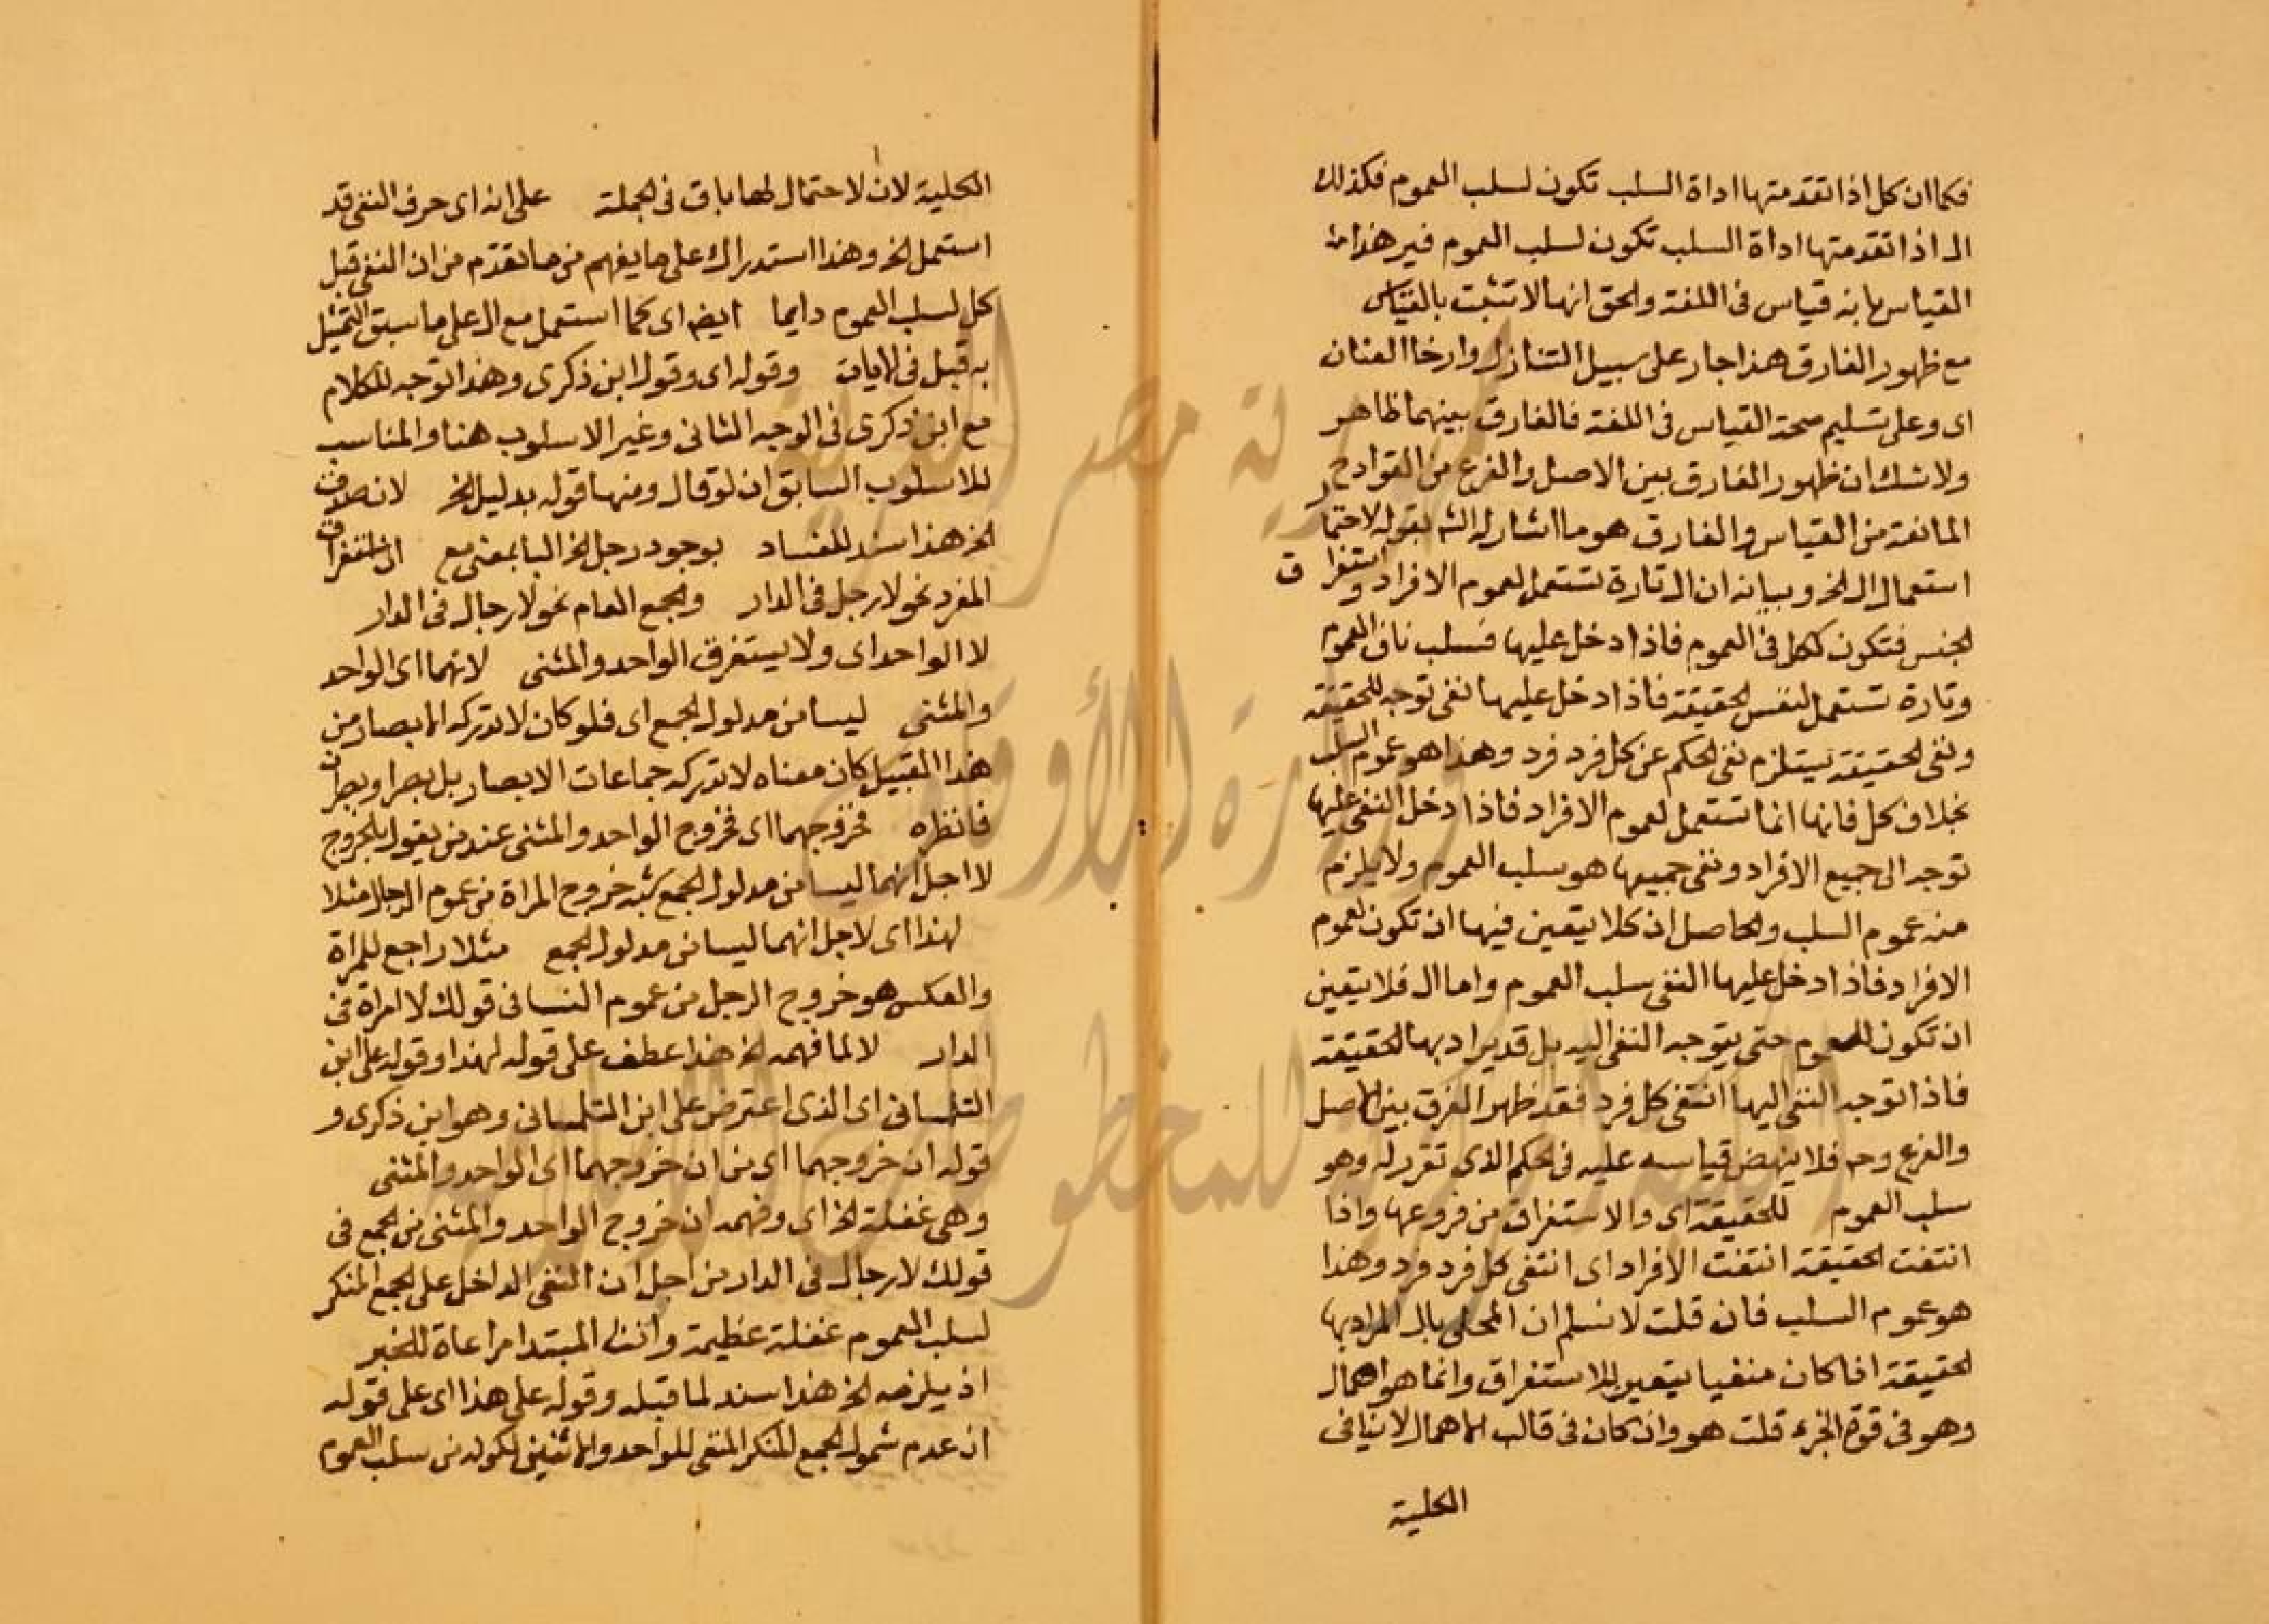 فكما ان كل اذا تقدمتها اداة السلب تكون لسلب العموم فكذلك
ال اذا تقدمتها اداة السلب تكون لسلب العموم فير هذا من
القياس بانه قياس فى اللغة والحق انها لا تثبت بالقياس
مع ظهور الفارق هذا جار على سبيل التنازل وارخا العنان
اى وعلى تسليم صحة القياس فى اللغة فالفارق بينهما ظاهر
ولا شك ان ظهور الفارق بين الاصل والفرع من القوادح
المانعة من القياس والفارق هو ما اشار له الش بقوله لاحتمال
استعمال ال الخ وبيانه ان ال تارة تستعمل لعموم الافراد واستغراق
الجنس فتكون ككل فى العموم فاذا دخل عليها فسلب نافى العموم
وتارة تستعمل لنفس الحقيقة فاذا دخل عليها نفى توجه للحقيقة
ونفى الحقيقة يستلزم نفى الحكم عن كل فرد فرد وهذا هو عموم السلب
بخلاف كل فانها انما تستعمل لعموم الافراد فاذا دخل النفى عليها
توجه الى جميع الافراد ونفى جميعها هو سلب العموم ولا يلزم
منه عموم السلب والحاصل ان كلا يتعين فيها ان تكون لعموم
الافراد فاذا دخل عليها النفى سلب العموم واما ال فلا يتعين
ان تكون للعموم حتى يتوجه النفى اليه بل قد يراد بها الحقيقة
فاذا توجه النفى اليها انتفى كل فرد فقد ظهر الفرق بين الاصل
والفرع وح فلا ينهض قياسه عليه فى الحكم الذى تقرر له وهو
سلب العموم للحقيقة اى والاستغراق من فروعها واذا
انتفت الحقيقة انتفت الافراد اى انتفى كل فرد فرد وهذا
هو عموم السلب فان قلت لا نسلم ان المحلى بال المراد بها
الحقيقة اذا كان منفيا يتعين للاستغراق وانما هو اهمال
وهو فى قوة الجزء قلت هو وان كان فى قالب الاهمال لا ينافى
الكلية
الكلية لان الاحتمال لها باق فى الجملة على انه اى حرف النفى قد
استعمل الخ وهذا استدراك على ما يفهم من ما تقدم من ان النفى قبل
كل لسلب العموم دايما ايضا اى كما استعمل مع ال على ما سبق التمثيل
به قبل فى الايات وقوله اى وقول ابن ذكرى وهذا توجه للكلام
مع ابن ذكرى فى الوجه الثانى وغير الاسلوب هنا والمناسب
للاسلوب السابق ان لو قال ومنها قوله بدليل الخ لانه صادق
الخ هذا سند للفساد بوجود رجل الخ البا بمعنى مع اى استغراق
المفرد نحو لا رجل فى الدار والجمع العام نحو لا رجال فى الدار
لا الواحد اى ولا يستغرق الواحد والمثنى لانهما اى الواحد
والمثنى ليسا من مدلول الجمع اى فلو كان لا تدركه الابصار من
هذا القبيل كان معناه لا تدركه جماعات الابصار بل بصر او بصران
فانظره فخروجهما اى فخروج الواحد والمثنى عند من يقول بالخروج
لا اجل انهما ليسا من مدلول الجمع يشبه خروج المراة من عموم الرجال مثلا
لهذا اى لاجل انهما ليسا من مدلول الجمع مثلا راجع للمراة
والعكس هو خروج الرجل من عموم النسا فى قولك لا امراة فى
الدار لا لما فهمه الخ هذا عطف على قوله لهذا وقوله على ابن
التلمسانى اى الذى اعترض على ابن التلمسانى وهو ابن ذكرى و
قوله ان خروجهما اى من ان خروجهما اى الواحد والمثنى
وهى غفلة الخ اى وفهمه ان خروج الواحد والمثنى من الجمع فى
قولك لا رجال فى الدار من اجل ان النفى الداخل على الجمع المنكر
لسلب العموم غفلة عظيمة وانث المبتدا مراعاة للخبر
اذ يلزمه الخ هذا سند لما قبله وقوله على هذا اى على قوله
ان عدم شمول الجمع المنكر المنفى للواحد والاثنين لكونه من سلب العموم